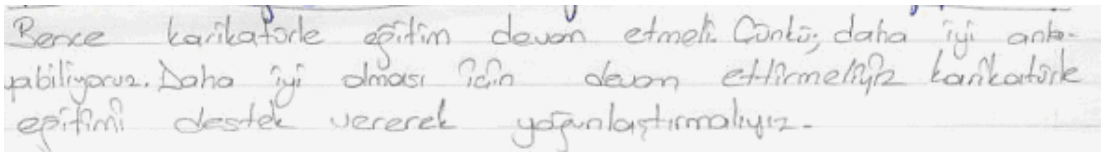 Bence karikatürle eğitim devam etmeli. Çünkü; daha iyi anla-
yabiliyoruz. Daha iyi olması için devam ettirmeliyiz karikatürle
eğitimi destek vererek yoğunlaştırmalıyız.